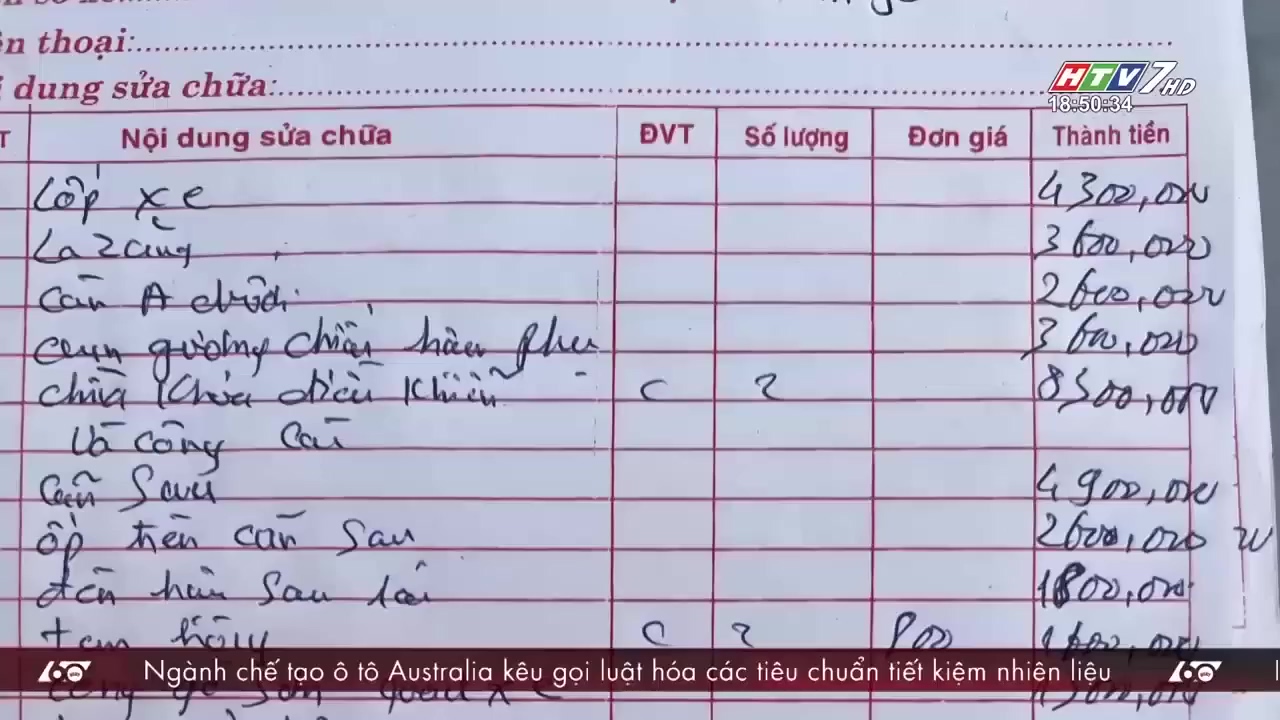 ện thoại:
i dung sửa chữa:
HTV7 HD
18:50:34
T Nội dung sửa chữa ĐVT Số lượng Đơn giá Thành tiền
Lốp xe 4300,000
La Zăng 3600,000
Cản A dưới 2600,000
cụm gương chiếu hậu phụ 3600,000
chìa khóa điều khiển C 2 8500,000
Và công cài
Cản Sau 4900,000
ốp trên cản Sau 2600,000
đèn hậu Sau lái 1800,000
tem C 2 800 1600,000
60 giây Ngành chế tạo ô tô Australia kêu gọi luật hóa các tiêu chuẩn tiết kiệm nhiên liệu 60 giây